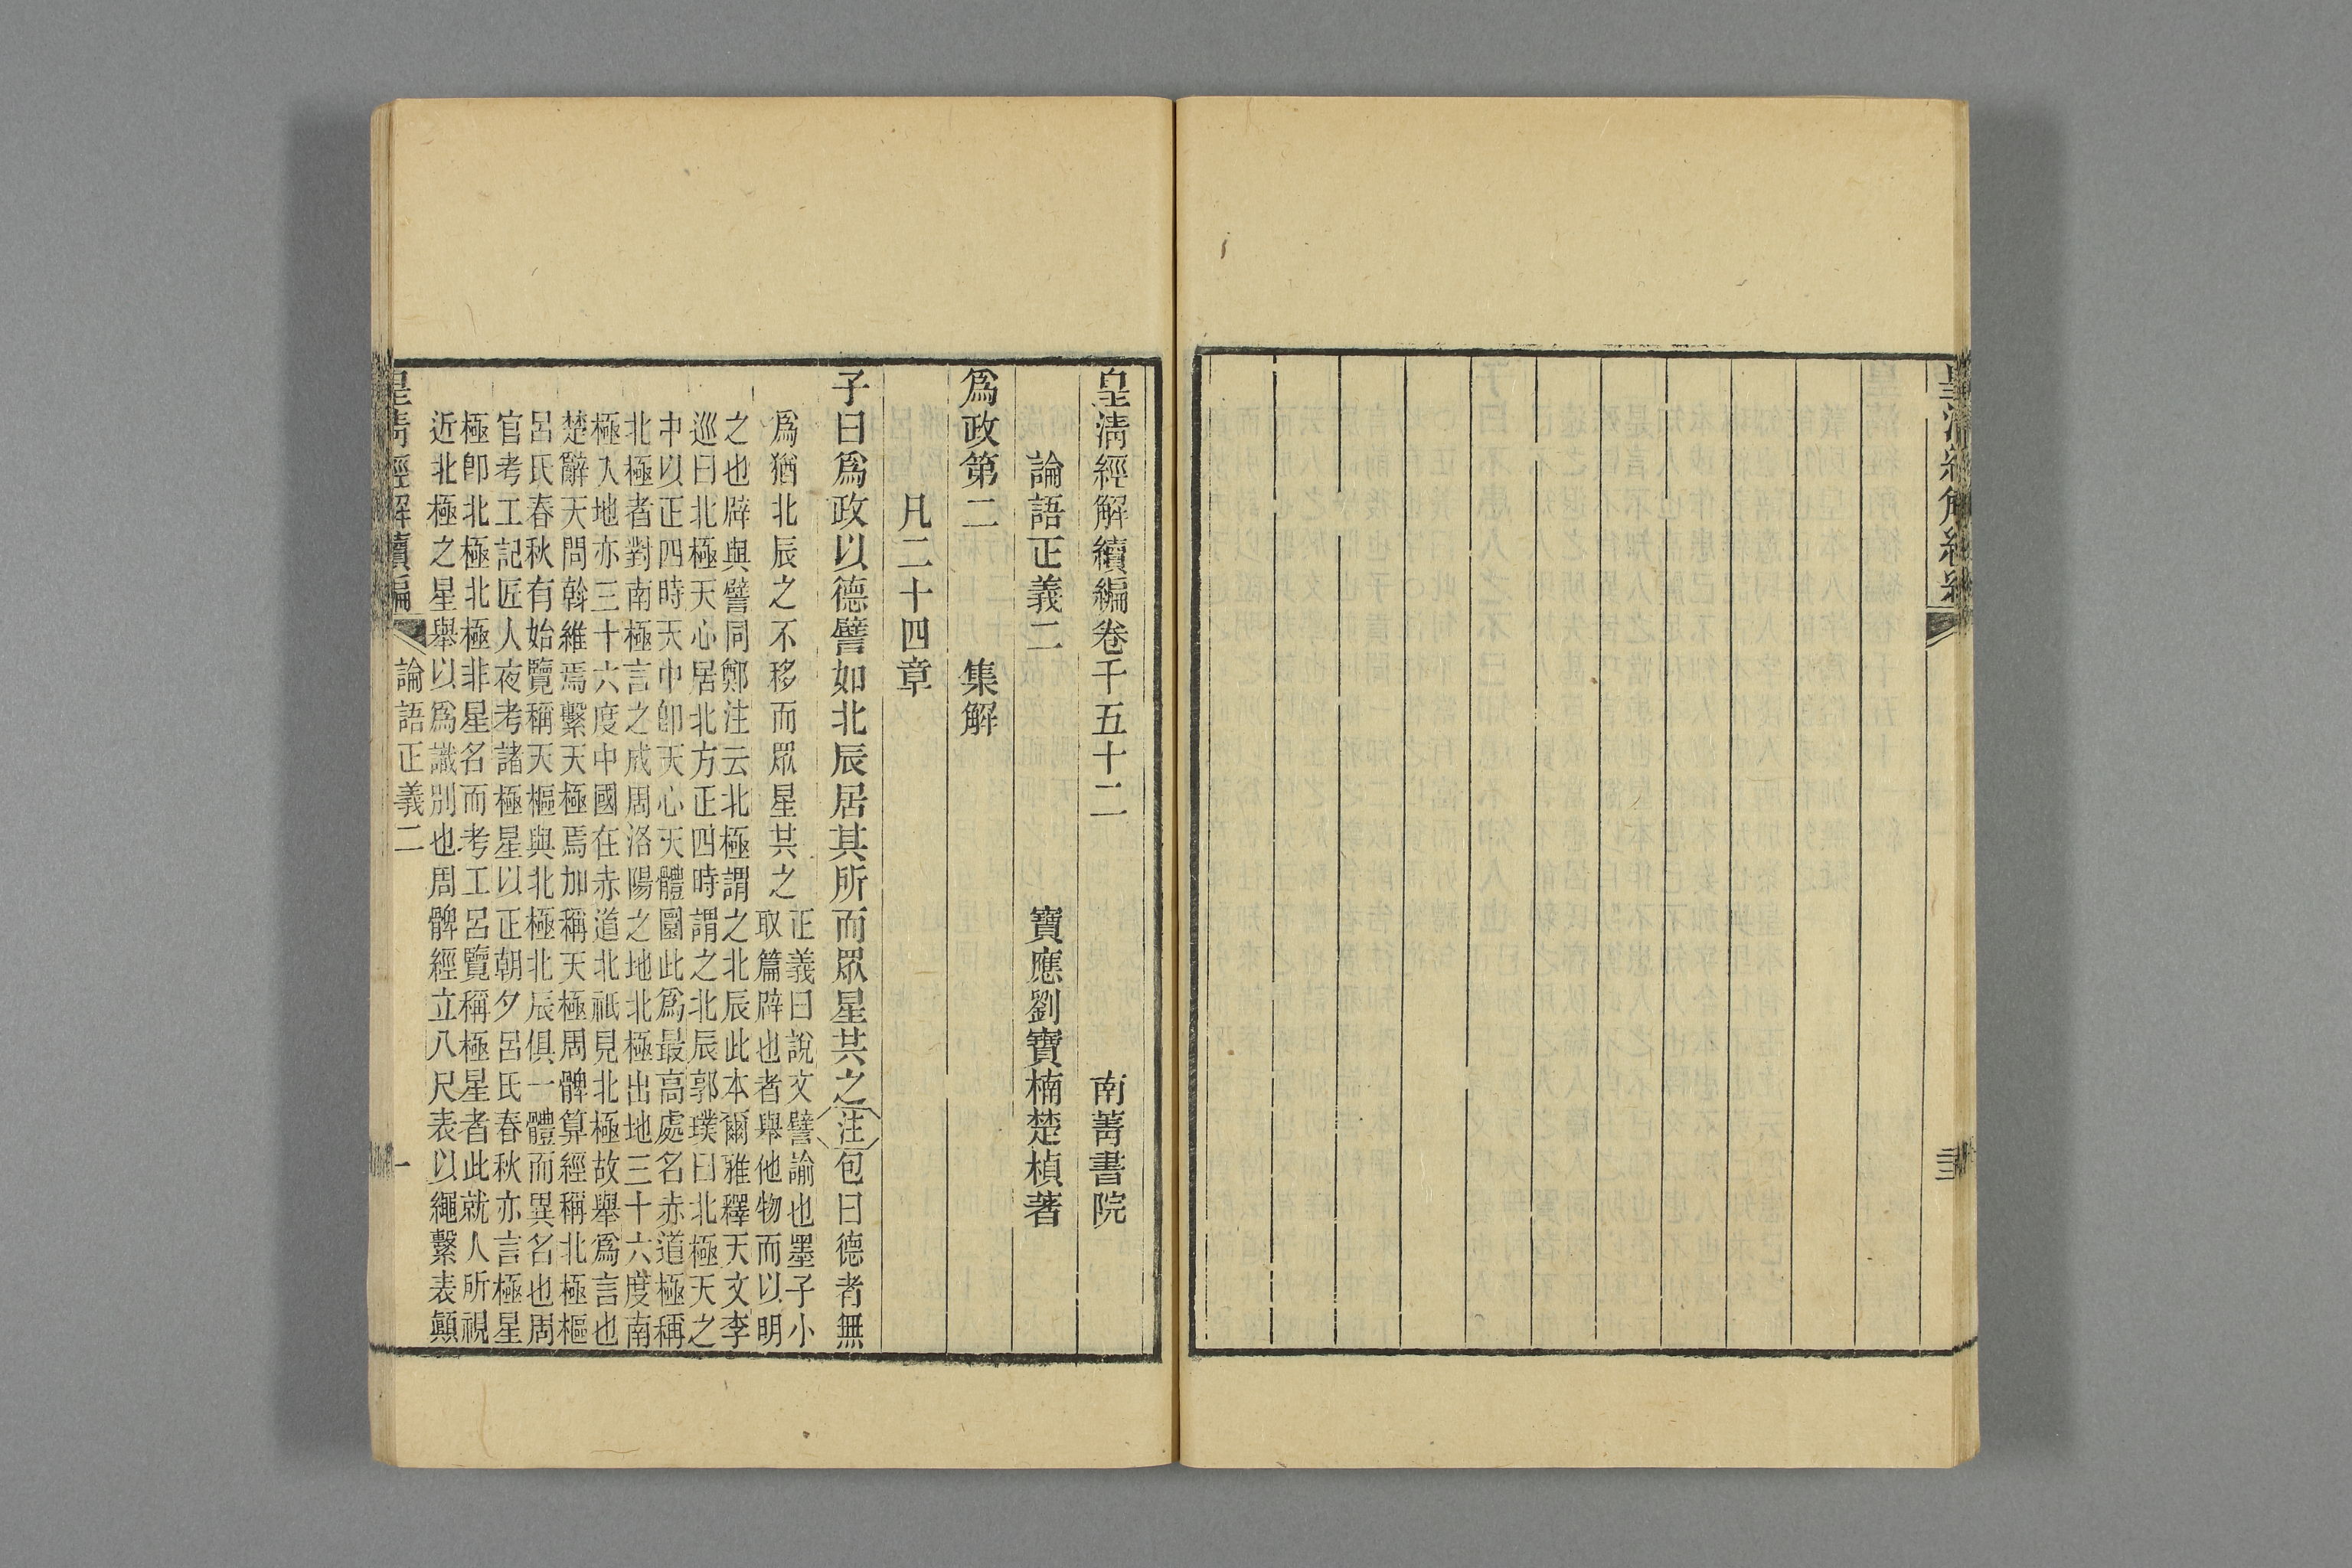 皇清經解續編卷千五十二 南菁書院
論語正義二 寶應劉寶楠楚楨著
爲政第二 集解
凡二十四章
子曰爲政以德譬如北辰居其所而眾星共之注包曰德者無
爲猶北辰之不移而眾星共之
正義曰說文譬諭也墨子小
取篇辟也者舉他物而以明
之也辟與譬同鄭注云北極謂之北辰此本爾雅釋天文李
巡曰北極天心居北方正四時謂之北辰郭璞曰北極天之
中以正四時天中卽天心天體圜此爲最高處名赤道極稱
北極者對南極言之成周洛陽之地北極出地三十六度南
極入地亦三十六度中國在赤道北祗見北極故舉爲言也
楚辭天問斡維焉繫天極焉加稱天極周髀算經稱北極樞
呂氏春秋有始覽稱天樞與北極北辰俱一體而異名也周
官考工記匠人夜考諸極星以正朝夕呂氏春秋亦言極星
極卽北極北極非星名而考工呂覽稱極星者此就人所視
近北極之星舉以爲識別也周髀經立八尺表以繩繫表顚
皇清經解續編 論語正義二 一